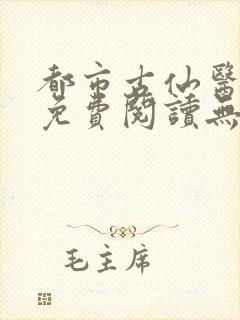 都市古仙醫
免費閱讀無
毛主席